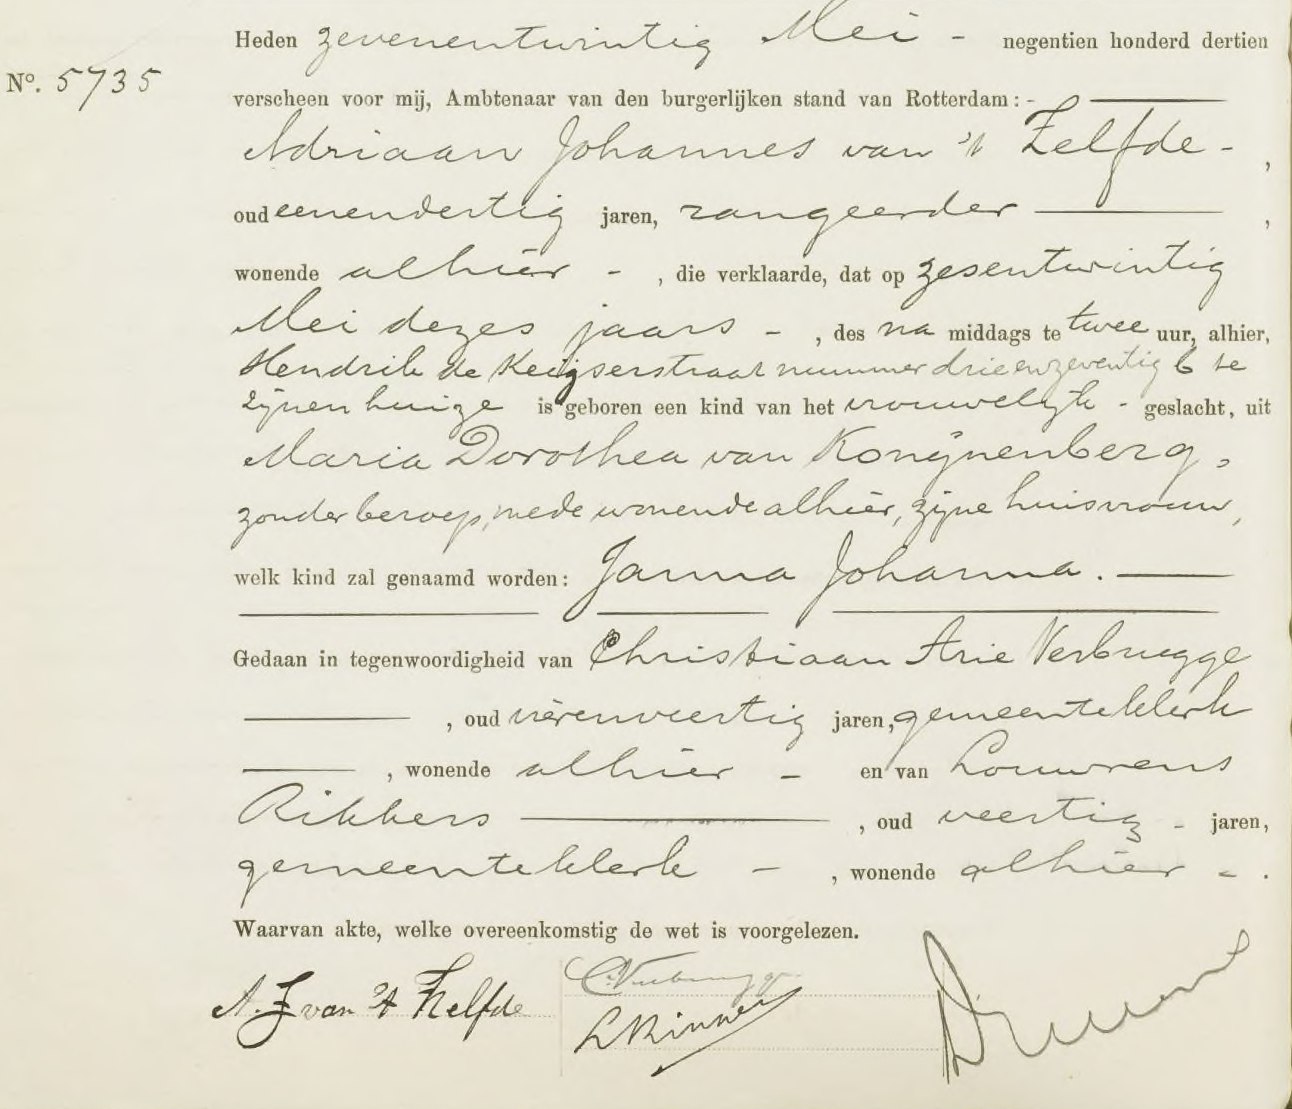 Heden zevenentwintig Mei - negentien honderd dertien
No. 5735
verscheen voor mij, Ambtenaar van den burgerlijken stand van Rotterdam: -
Adriaan Johannes van 't Zelfde - ,
oud eenendertig jaren, rangeerder ,
wonende alhier - , die verklaarde, dat op zesentwintig
Mei dezes jaars - , des na middags te twee uur, alhier,
Hendrik de Keijserstraat nummer drieenzeventig b te
zijnen huize is geboren een kind van het vrouwelijk - geslacht, uit
Maria Dorothea van Konijnenberg,
zonder beroep, mede wonende alhier, zijne huisvrouw,
welk kind zal genaamd worden: Janna Johanna.
Gedaan in tegenwoordigheid van Christiaan Arie Verbrugge
, oud vierenveertig jaren, gemeenteklerk
, wonende alhier - en van Louwrens
Rikkers , oud veertig - jaren,
gemeenteklerk - , wonende alhier - .
Waarvan akte, welke overeenkomstig de wet is voorgelezen.
A. J van 't Zelfde
C. Verbrugge